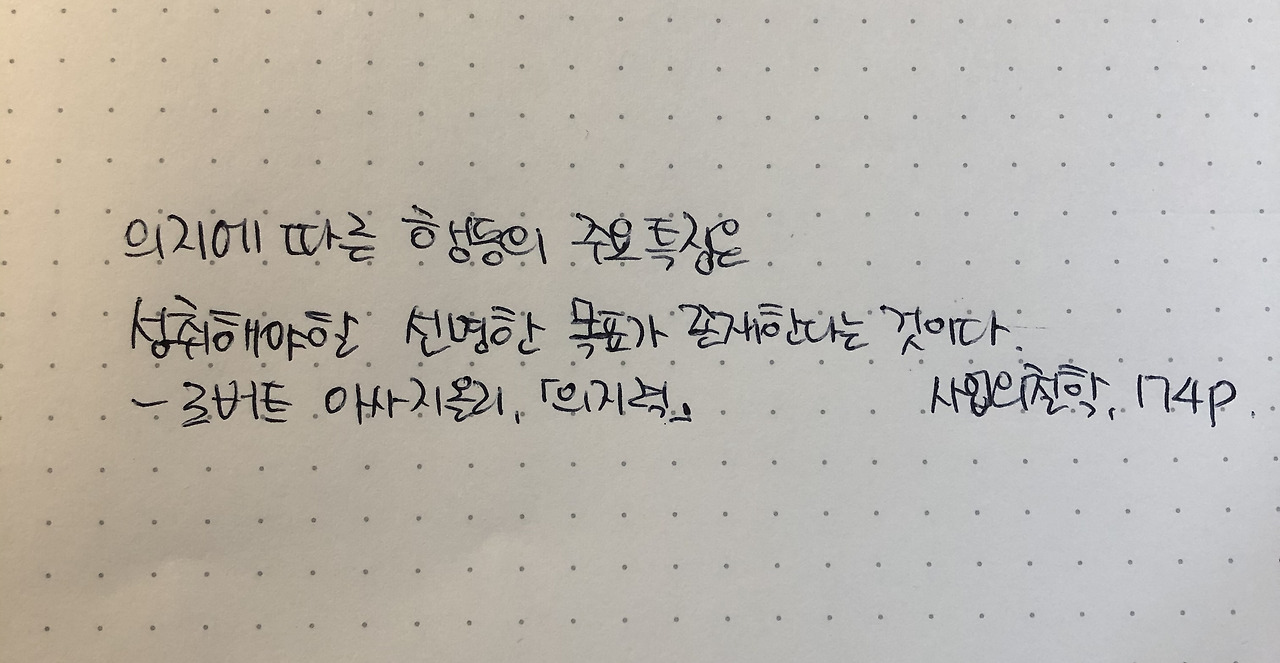 의지에 따른 행동의 주요 특징은
성취해야할 선명한 목표가 존재한다는 것이다.
- 로버트 아사지올리, 「의지력」 사업의철학, 174p.